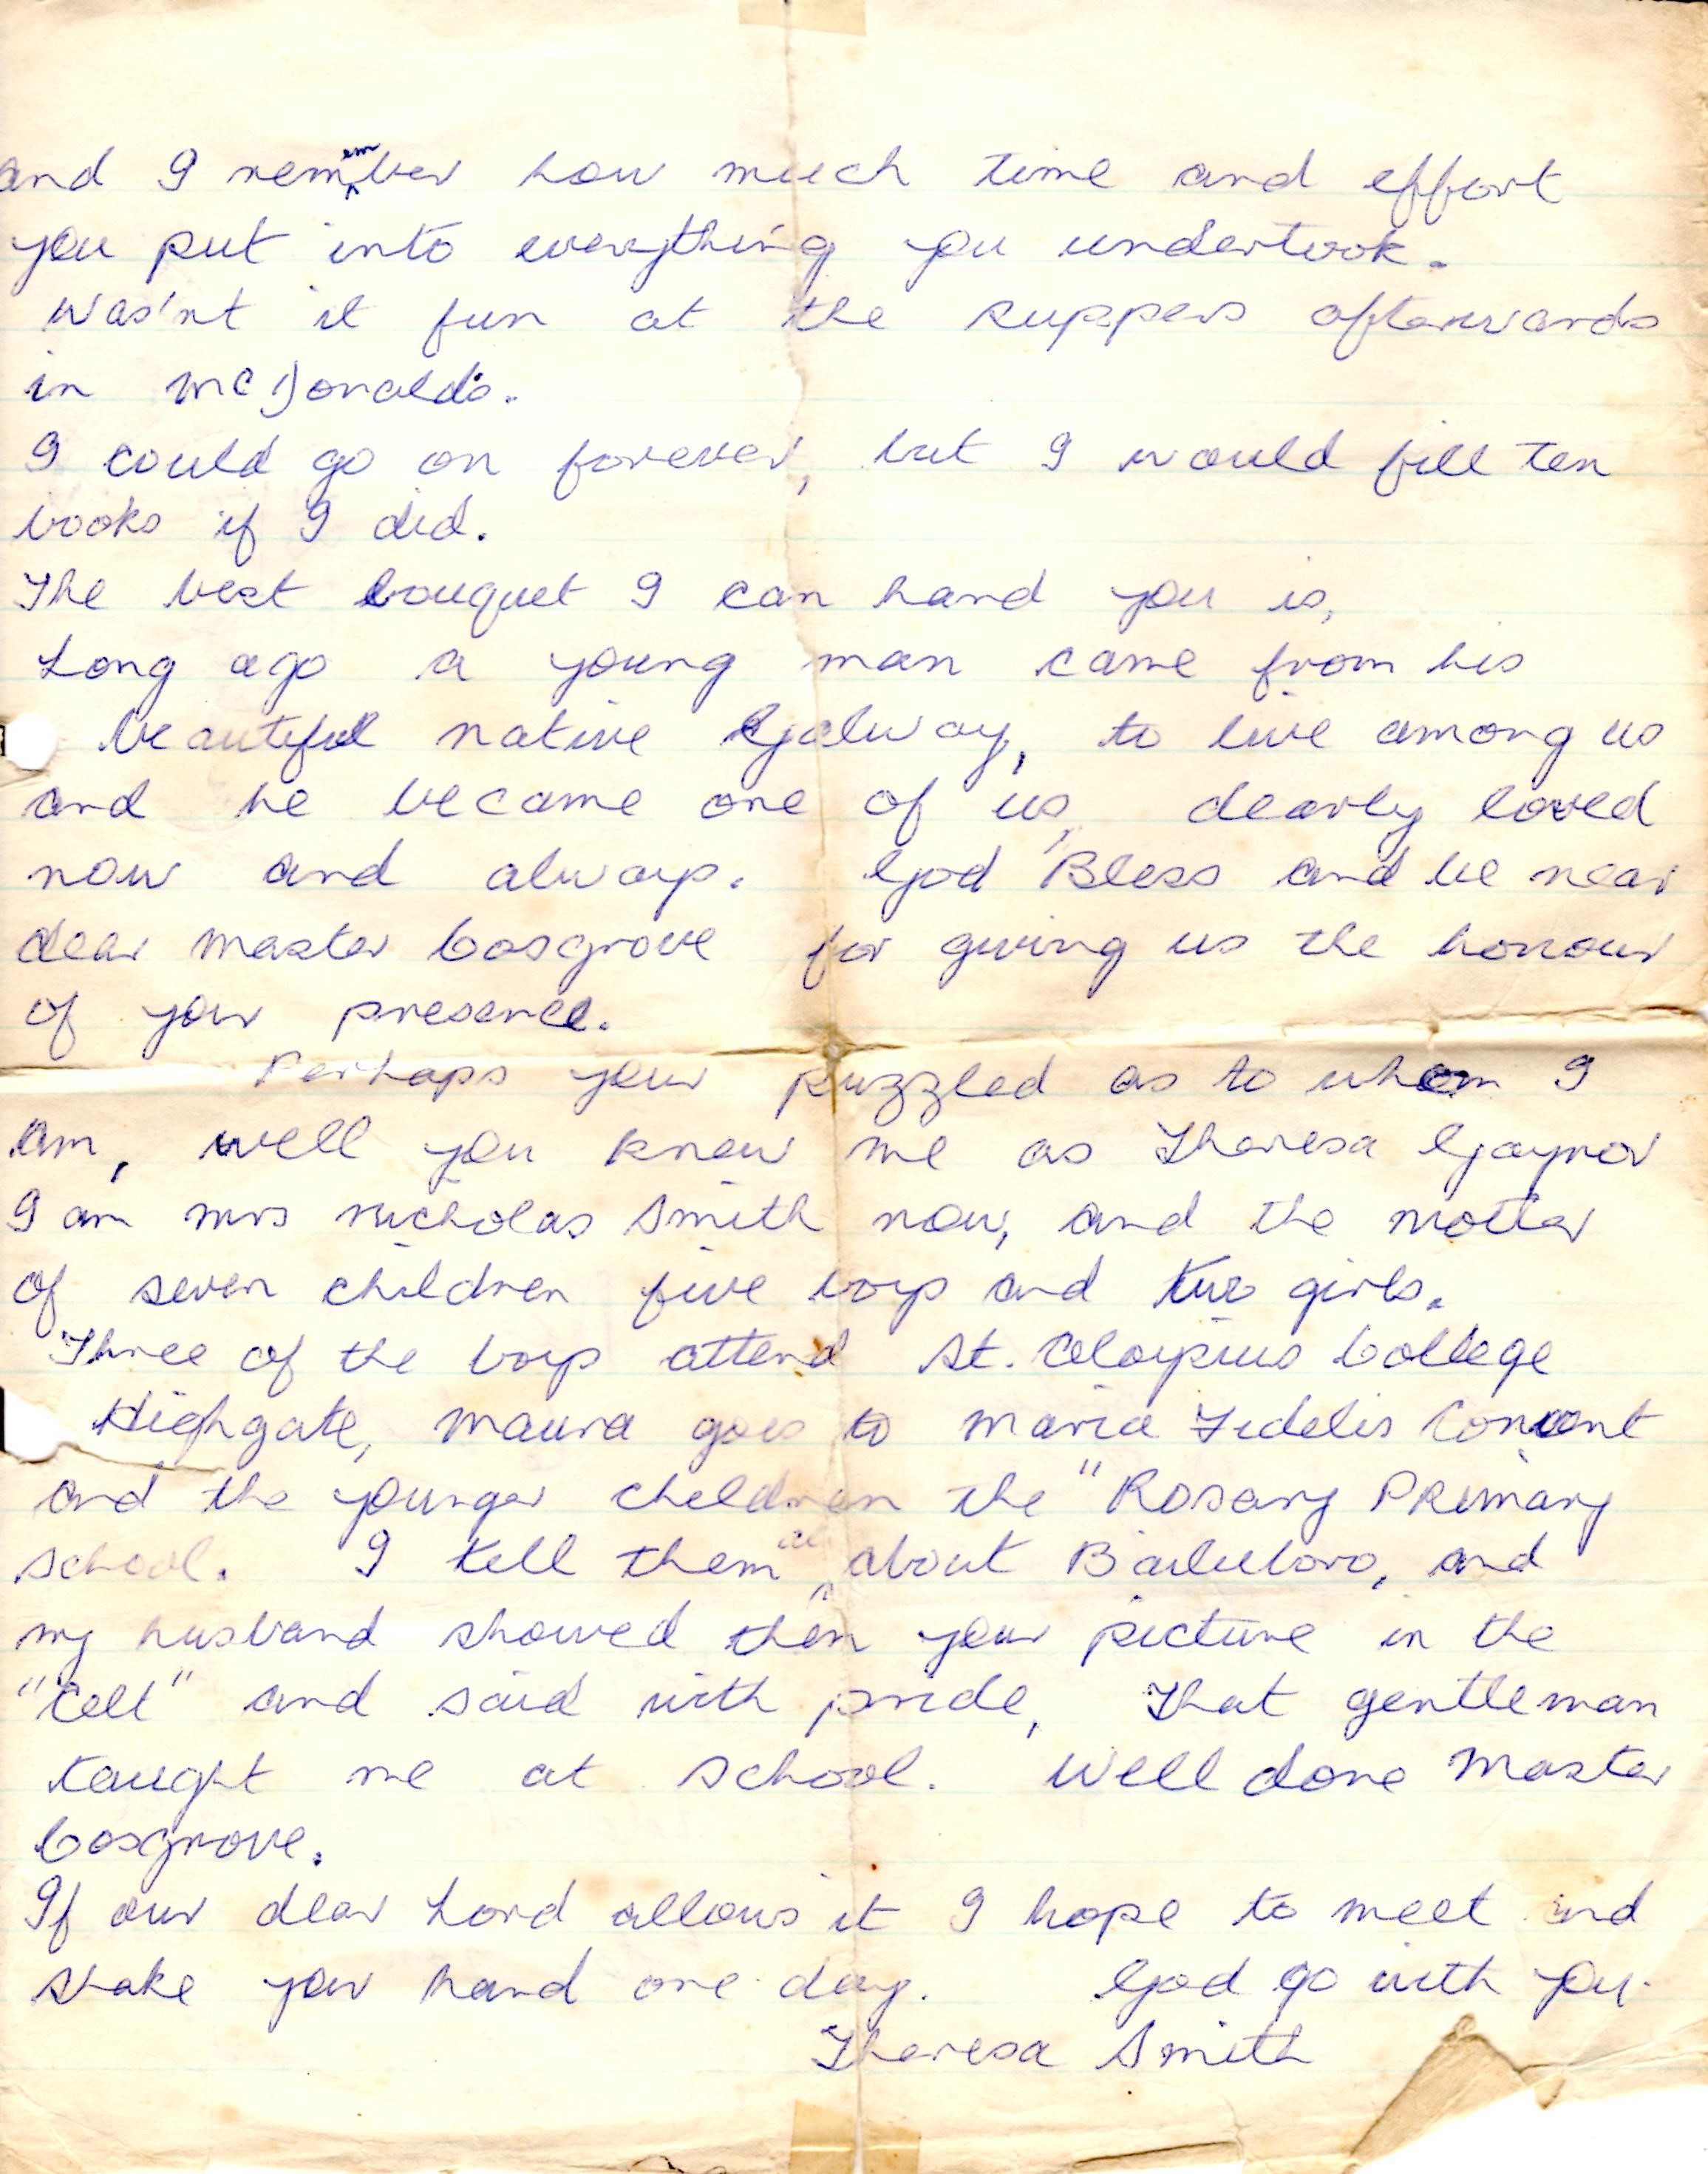 and I rememember how much time and effort
you put into everything you undertook.
Was'nt it fun at the suppers afterwards
in McDonalds.
I could go on forever, but I would fill ten
books if I did.
The best bouquet I can hand you is,
Long ago a young man came from his
beautiful native Galway, to live among us
and he became one of us, dearly loved
now and always. God Bless and be near
dear Master Cosgrove for giving us the honour
of your presence.
Perhaps your puzzled as to whom I
am, well you knew me as Theresa Gaynor
I am Mrs Nicholas Smith now, and the mother
of seven children five boys and two girls.
Three of the boys attend St. Aloysius College
Highgate, Maura goes to Maria Fidelis Convent
and the younger children the "Rosary Primary
school. I tell them all about Bailieboro, and
my husband showed them your picture in the
"Celt" and said with pride, That gentleman
taught me at school. Well done Master
Cosgrove.
If our dear Lord allows it I hope to meet and
shake your hand one day. God go with you.
Theresa Smith